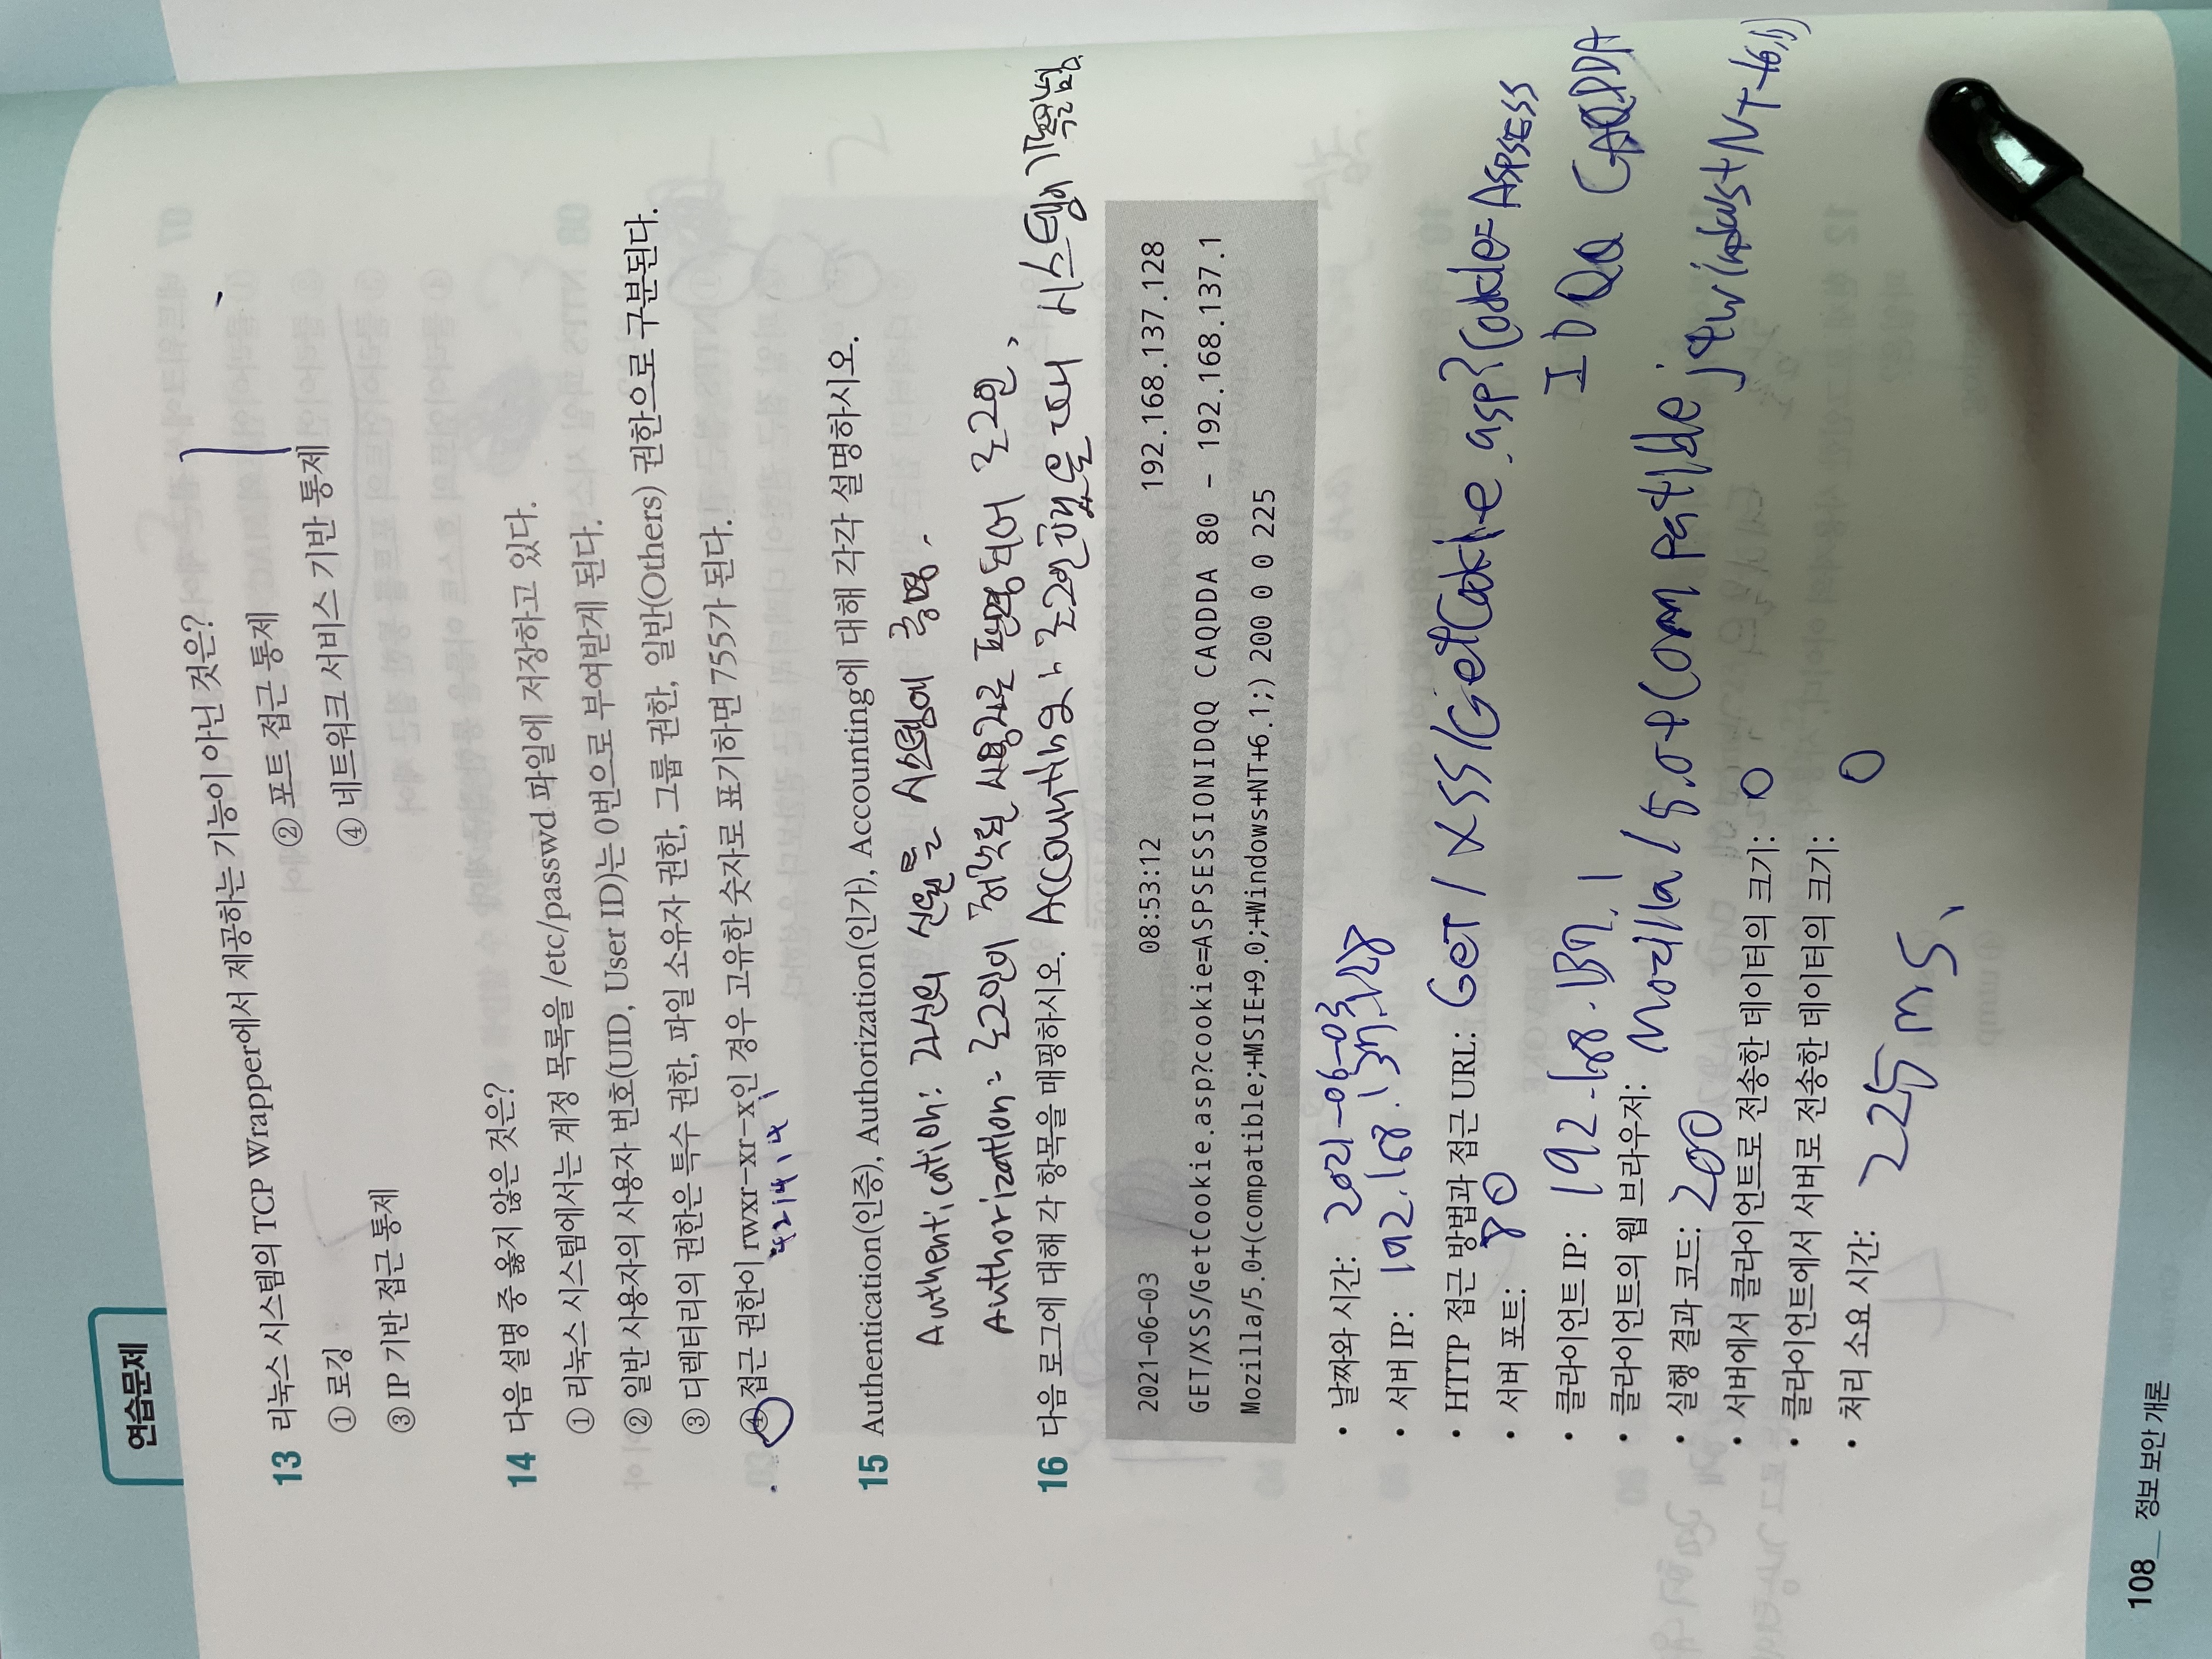 연습문제
13 리눅스 시스템의 TCP Wrapper에서 제공하는 기능이 아닌 것은?
① 로깅 ② 포트 접근 통제
③ IP 기반 접근 통제 ④ 네트워크 서비스 기반 통제
14 다음 설명 중 옳지 않은 것은?
① 리눅스 시스템에서는 계정 목록을 /etc/passwd 파일에 저장하고 있다.
② 일반 사용자의 사용자 번호(UID, User ID)는 0번으로 부여받게 된다.
③ 디렉터리의 권한은 특수 권한, 파일 소유자 권한, 그룹 권한, 일반(Others) 권한으로 구분된다.
④ 접근 권한이 rwxr-xr-x인 경우 고유한 숫자로 표기하면 755가 된다.
4 2 1 4 1 4 1
15 Authentication(인증), Authorization(인가), Accounting에 대해 각각 설명하시오.
Authentication: 자신의 신원을 시스템에 증명.
Authorization: 로그인이 허락된 사용자로 판명되어 로그인.
16 다음 로그에 대해 각 항목을 매핑하시오. Accounting: 로그인 했을 때 시스템이
2021-06-03 08:53:12 192.168.137.128
GET/XSS/GetCookie.asp?cookie=ASPSESSIONIDQQ CAQDDA 80 - 192.168.137.1
Mozilla/5.0+(compatible;+MSIE+9.0;+Windows+NT+6.1;) 200 0 0 225
• 날짜와 시간: 2021-06-03
• 서버 IP: 192.168.137.128
• HTTP 접근 방법과 접근 URL: GET/XSS/GetCookie.asp?Cookie=ASPSESS
• 서버 포트: 80
IDQQ CAQDDA
• 클라이언트 IP: 192.168.137.1
• 클라이언트의 웹 브라우저: Mozilla/5.0+(compatible;+windows+NT+6.1;)
• 실행 결과 코드: 200
• 서버에서 클라이언트로 전송한 데이터의 크기: 0
• 클라이언트에서 서버로 전송한 데이터의 크기: 0
• 처리 소요 시간: 225ms.
108__ 정보 보안 개론